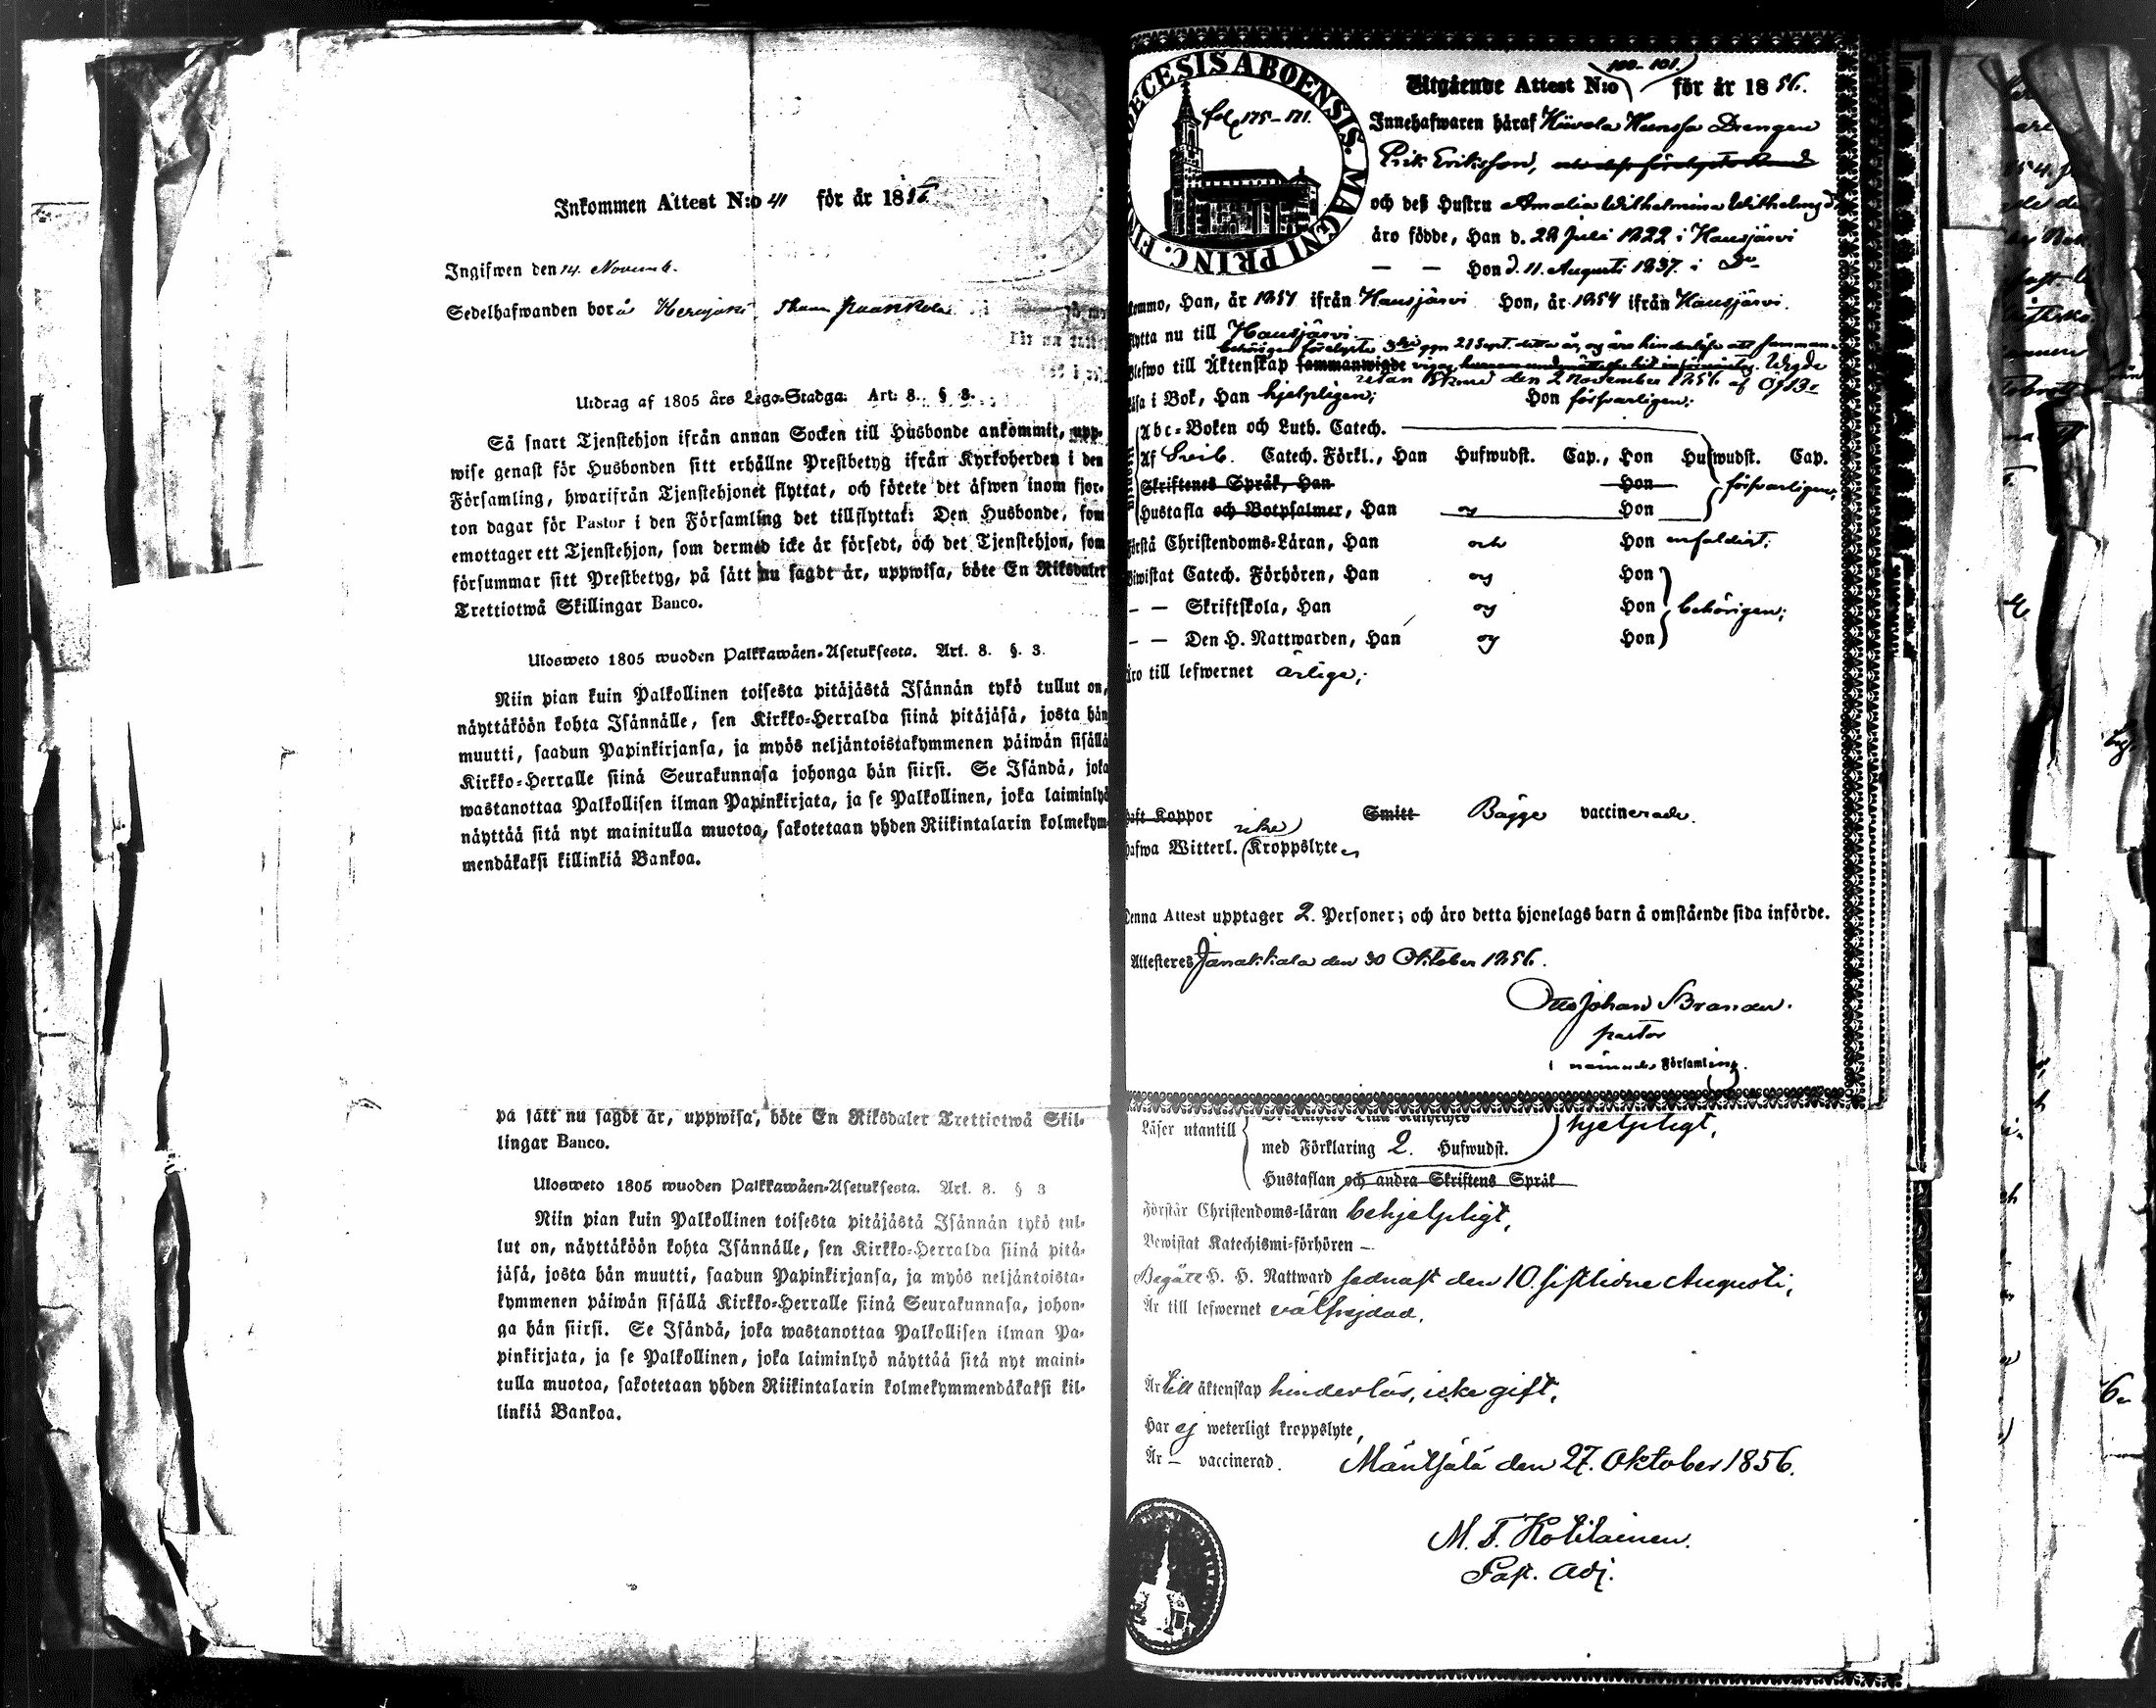 Inkommen Attest N:o 41 för år 1856.
Ingifwen den 14. Novemb.
Sedelhafwanden bor å
Utdrag af 1805 års Lego-Stadga. Art: 8. § 3.
Så snart Tjenstehjon ifrån annan Socken till Husbonde ankommit, upp-
wise genast för Husbonden sitt erhållne Prestbetyg ifrån Kyrkoherden i den
Församling, hwarifrån Tjenstehjonet flyttat, och förete det äfwen inom fjor-
ton dagar för Pastor i den Församling det tillflyttat: Den Husbonde, som
emottager ett Tjenstehjon, som dermed icke är försedt, och det Tjenstehjon, som
försummar sitt Prestbetyg, på sätt nu sagdt är, uppwisa, böte En Riksdaler
Trettiotwå Skillingar Banco.
Ulosweto 1805 wuoden Palkkawäen-Asetuksesta. Art. 8. §. 3.
Niin pian kuin Palkollinen toisesta pitäjästä Isännän tykö tullut on,
näyttäköön kohta Isännälle, sen Kirkko-Herralda siinä pitäjäsä, josta hän
muutti, saadun Papinkirjansa, ja myös neljäntoistakymmenen päiwän sisällä
Kirkko-Herralle siinä Seurakunnasa johonga hän siirsi. Se Isändä, joka
wastanottaa Palkollisen ilman Papinkirjata, ja se Palkollinen, joka laiminlyö
näyttää sitä nyt mainitulla muotoa, sakotetaan yhden Riikintalarin kolmekym-
mendäkaksi killinkiä Bankoa.
på sätt nu sagdt är, uppwisa, böte En Riksdaler Trettiotwå Skil-
lingar Banco.
Ulosweto 1805 wuoden Palkkawäen-Asetuksesta. Art. 8. § 3
Niin pian kuin Palkollinen toisesta pitäjästä Isännän tykö tul-
lut on, näyttäköön kohta Isännälle, sen Kirkko-Herralda siinä pitä-
jäsä, josta hän muutti, saadun Papinkirjansa, ja myös neljäntoista-
kymmenen päiwän sisällä Kirkko-Herralle siinä Seurakunnasa, johon-
ga hän siirsi. Se Isändä, joka wastanottaa Palkollisen ilman Pa-
pinkirjata, ja se Palkollinen, joka laiminlyö näyttää sitä nyt maini-
tulla muotoa, sakotetaan yhden Riikintalarin kolmekymmendäkaksi kil-
linkiä Bankoa.
DECESIS ABOENSIS. MAGNI PRINC.
fol 175-171.
Utgående Attest N:o 100-101 för år 1856.
Innehafwaren häraf Drengen
Erik Eriksson,
och deß Hustru Amalia Wilhelmina Wilhelmsd.
äro födde, Han d. 28 Juli 1822 i Hausjärvi
— — Hon d. 11. Augusti 1837. i Do
kommo, Han, år 1851 ifrån Hausjärvi Hon, år 1854 ifrån Hausjärvi.
flytta nu till Hausjärvi.
blefwo till Äktenskap sammanwigde Wigde
den 2 November 1856 af
läsa i Bok, Han hjelpligen; Hon försvarligen;
Abc-Boken och Luth. Catech.
Af Sveb. Catech. Förkl., Han Hufwudst. Cap., Hon Hufwudst. Cap.
Skriftenes Språk, Han Hon försvarligen;
Hustafla och Botpsalmer, Han och Hon
förstå Christendoms-Läran, Han och Hon enfaldigt;
biwistat Catech. Förhören, Han och Hon
— — Skriftskola, Han och Hon behörigen;
— — Den H. Nattwarden, Han och Hon
äro till lefwernet ärlige;
haft Koppor Smitt Bägge vaccinerade.
hafwa Witterl. icke Kroppslyte
Denna Attest upptager 2. Personer; och äro detta hjonelags barn å omstående sida införde.
Attesteres Janakkala den 30 Oktober 1856.
Otto Johan Brander.
pastor
i nämnde Församling.
Läser utantill hjelpligt,
med Förklaring 2. Hufwudst.
Hustaflan och andra Skriftens Språk
Förstår Christendoms-läran behjelpligt,
Bewistat Katechismi-förhören —
Begått H. H. Nattward sednast den 10. sistlidne Augusti;
Är till lefwernet välfrejdad.
Är till äktenskap hinderlös, icke gift,
Har ej weterligt kroppslyte,
Är — vaccinerad.
Mäntsälä den 27. Oktober 1856.
M. F. Kotilainen.
Past. Adj.